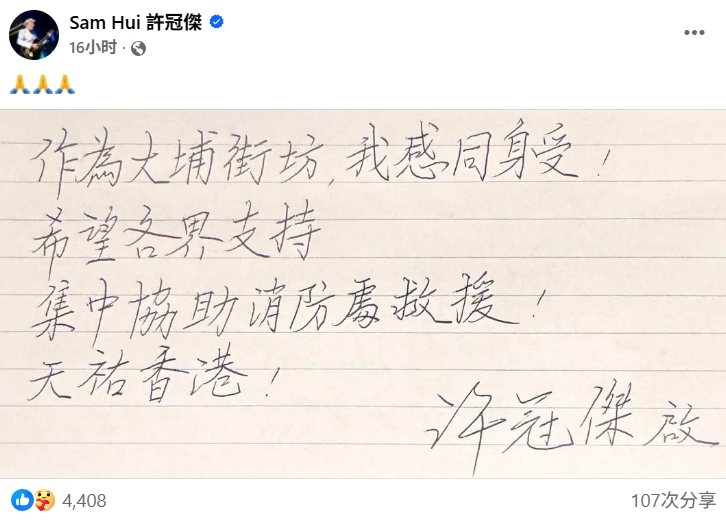 Sam Hui 許冠傑
16小时 ·
🙏🙏🙏
作為大埔街坊,我感同身受!
希望各界支持
集中協助消防處救援!
天祐香港!
許冠傑 啟
4,408
107次分享